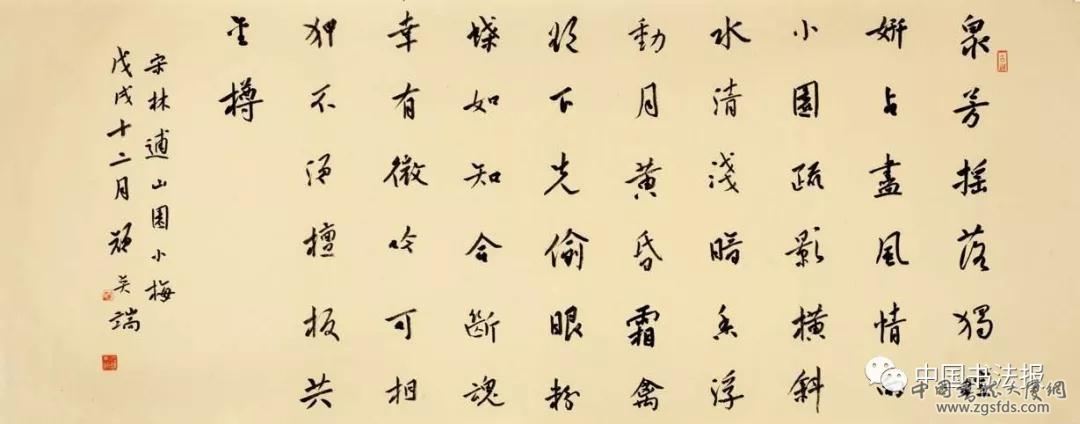 衆芳摇落獨暄
妍占盡風情向
小園疏影橫斜
水清淺暗香浮
動月黃昏霜禽
欲下先偷眼粉
蝶如知合斷魂
幸有微吟可相
狎不須檀板共
金樽
宋林逋山園小梅
戊戌十二月
中国书法报
www.zgsfds.com